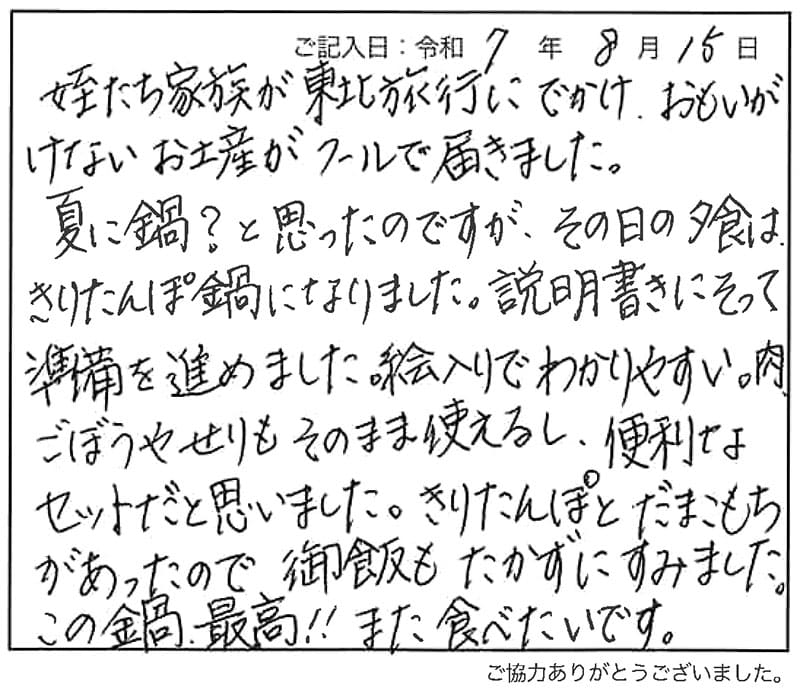 ご記入日：令和 7 年 8 月 15 日
姪たち家族が東北旅行にでかけ、おもいが
けないお土産がクールで届きました。
夏に鍋？と思ったのですが、その日の夕食は、
きりたんぽ鍋になりました。説明書きにそって
準備を進めました。絵入りでわかりやすい。肉、
ごぼうやせりもそのまま使えるし、便利な
セットだと思いました。きりたんぽとだまこもち
があったので御飯もたかずにすみました。
この鍋、最高!!また食べたいです。
ご協力ありがとうございました。